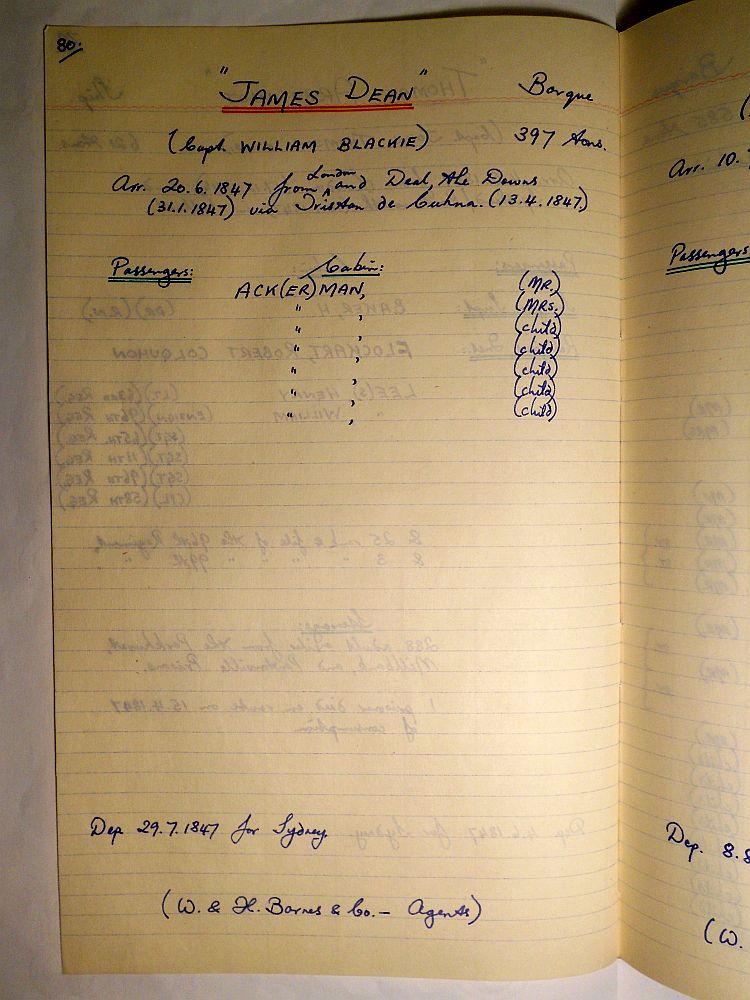 80.
"JAMES DEAN" Barque
(Capt. WILLIAM BLACKIE) 397 tons.
Arr. 20.6.1847 from London and Deal, the Downs
(31.1.1847) via Tristan de Cuhna. (13.4.1847)
Passengers: Cabin:
ACK(ER)MAN, (MR.)
" , (MRS.)
" , (child)
" , (child)
" , (child)
" , (child)
" , (child)
Dep 29.7.1847 for Sydney.
(W. & H. Barnes & Co. - Agents)
Arr. 10.
Passengers
Dep. 8.8
(W.